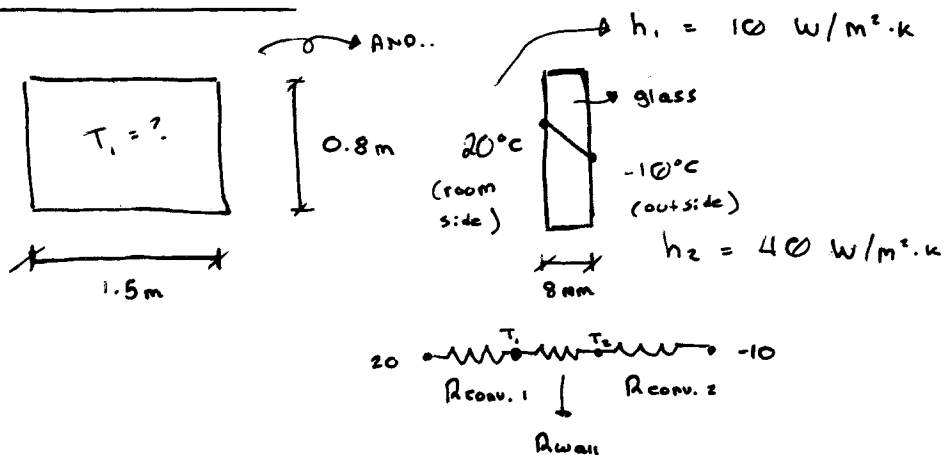 AND..
h₁ = 10 W/m²·k
glass
T₁ = ?
0.8 m
20°C
(room
side)
-10°C
(outside)
h₂ = 40 W/m²·k
1.5 m
8 mm
20 T₁ T₂ -10
Rconv. 1 Rconv. 2
Rwall